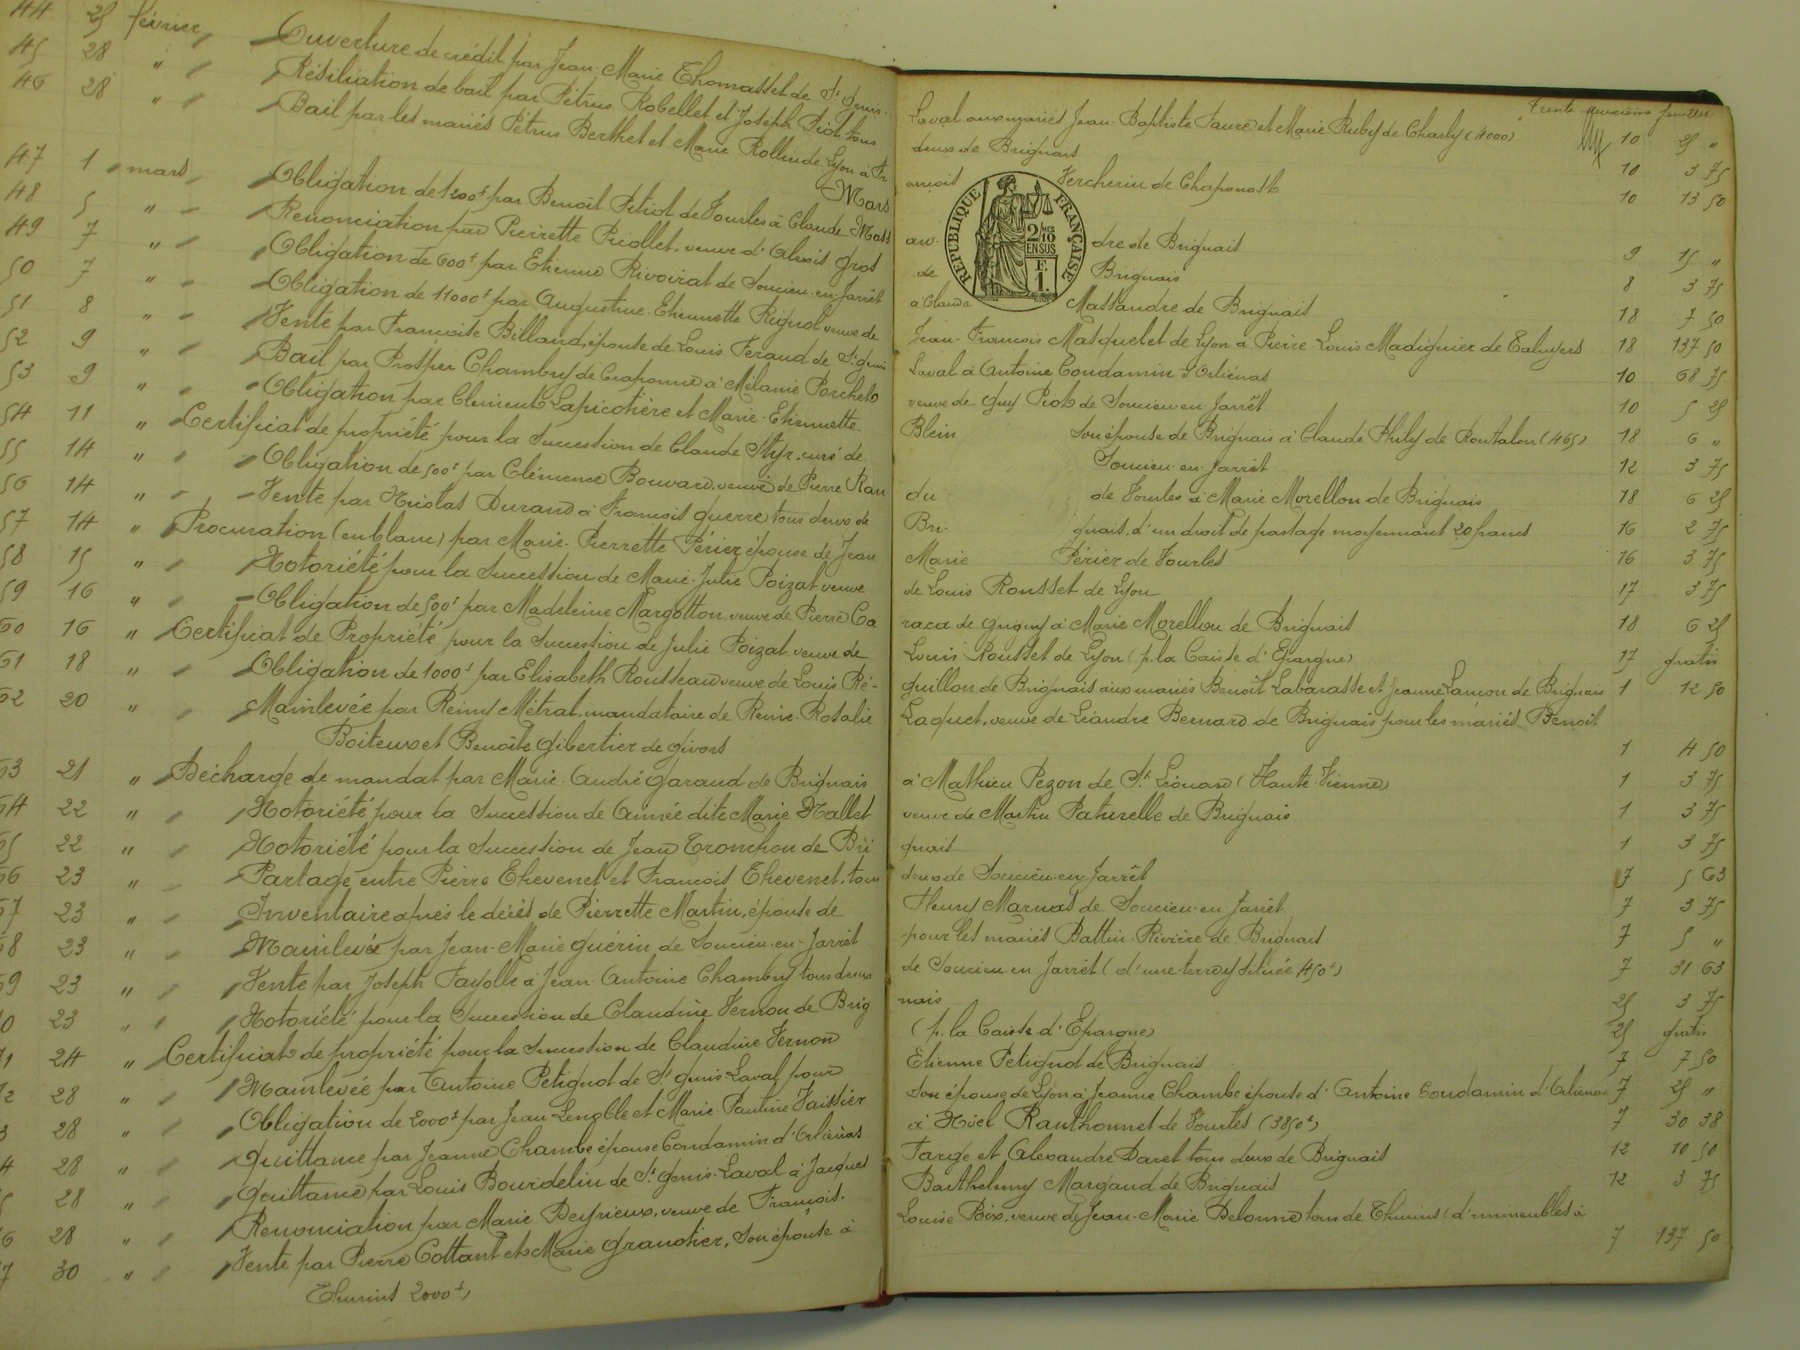 44 25 février Ouverture de crédit par Jean-Marie Thomasset de St Genis-
45 28 " Résiliation de bail par Pétrus Robellet et Joseph Piot tous
46 28 " Bail par les mariés Pétrus Berthet et Marie Rollin de Lyon à Fr
Mars
47 1 mars Obligation de 1200f par Benoît Pitiot de Vourles à Claude Mass
48 5 " Renonciation par Pierrette Priollet, veuve d'Alexis Gros
49 7 " Obligation de 600f par Etienne Rivoirat de Soucieu-en-Jarrêt
50 7 " Obligation de 11000f par Augustine Etiennette Rignol veuve de
51 8 " Vente par Françoise Billaud, épouse de Louis Feraud de St Genis
52 9 " Bail par Prosper Chambry de Craponne à Mélanie Porcheb
53 9 " Obligation par Clément Lapicotière et Marie-Etiennette
54 11 " Certificat de propriété pour la succession de Claude Thyr, curé de
55 14 " Obligation de 500f par Clémence Bouvard, veuve de Pierre Rau
56 14 " Vente par Nicolas Durand à François Guerre tous deux de
57 14 " Procuration (en blanc) par Marie-Pierrette Périer épouse de Jean
58 15 " Notoriété pour la succession de Marie-Julie Poizat veuve
59 16 " Obligation de 500f par Madeleine Margotton, veuve de Pierre Ca
60 16 " Certificat de Propriété pour la succession de Julie Poizat veuve de
61 18 " Obligation de 1000f par Elisabeth Rousseau veuve de Louis Ré-
62 20 " Mainlevée par Rémy Métrat, mandataire de Reine-Rosalie
Boiteux et Benoîte Gibertier de Givors
63 21 " Décharge de mandat par Marie-André Garaud de Brignais
64 22 " Notoriété pour la succession de Aimée dite Marie Mallet
65 22 " Notoriété pour la succession de Jean Tronchon de Bri
66 23 " Partage entre Pierre Thevenet et François Thevenet, tous
67 23 " Inventaire après le décès de Pierrette Martin, épouse de
68 23 " Mainlevée par Jean-Marie Guérin de Soucieu-en-Jarrêt
69 23 " Vente par Joseph Fayolle à Jean-Antoine Chambry tous deux
0 23 " Notoriété pour la succession de Claudine Vernon de Brig
71 24 " Certificat de propriété pour la succession de Claudine Vernon
72 28 " Mainlevée par Antoine Petignot de St Genis-Laval pour
3 28 " Obligation de 2000f par Jean Lenoble et Marie Pauline Vaissier
4 28 " Quittance par Jeanne Chambe épouse Condamin d'Orliénas
5 28 " Quittance par Louis Bourdelin de St Genis-Laval à Jacques
6 28 " Renonciation par Marie Deyrieux, veuve de François-
7 30 " Vente par Pierre Cottant et Marie Granotier, son épouse à
Thurins 2000f)
Trente-deuxième feuillet
Laval aux mariés Jean-Baptiste Faure et Marie Ruby de Charly (4000) 10 25 "
deux de Brignais 10 3 75
ançois Vercherin de Chaponost 10 13 50
REPUBLIQUE FRANÇAISE
2/10MES EN SUS
F. 1.
dre de Brignais 9 15 "
de Brignais 8 3 75
à Claude Massandre de Brignais 18 7 50
Jean-François Masquelet de Lyon à Pierre Louis Madiguier de Taluyers 18 137 50
Laval à Antoine Condamin d'Orliénas 10 68 75
veuve de Guy Piot de Soucieu-en-Jarrêt 10 5 25
Blein son épouse de Brignais à Claude Phily de Rontalon (465) 18 6 "
Soucieu-en-Jarrêt 12 3 75
du de Vourles à Marie Morellon de Brignais 18 6 25
Bri- gnais, d'un droit de passage moyennant 20 francs 16 2 75
Marie Périer de Vourles 16 3 75
de Louis Rousset de Lyon 17 3 75
raca de Grigny à Marie Morellon de Brignais 18 6 25
Louis Rousset de Lyon (p. la Caisse d'Epargne) 17 gratis
guillon de Brignais aux mariés Benoît Labarasse et Jeanne Lancon de Brignais 1 12 50
Laquet, veuve de Léandre Bernard de Brignais pour les mariés Benoît
1 4 50
à Mathieu Pezon de St Léonard (Haute-Vienne) 1 3 75
veuve de Martin Paturelle de Brignais 1 3 75
gnais 1 3 75
deux de Soucieu-en-Jarrêt 7 5 63
Fleury Marnas de Soucieu-en-Jarrêt 7 3 75
pour les mariés Battin-Rivière de Brignais 7 5 "
de Soucieu en Jarrêt (d'une terre y située 450f) 7 31 63
nais 25 3 75
(p. la Caisse d'Epargne) 25 gratis
Etienne Petignot de Brignais 7 7 50
son épouse de Lyon à Jeanne Chambe épouse d'Antoine Condamin d'Orliénas 7 25 "
à Noël Ranthonnet de Vourles (3850f) 7 30 38
Targe et Alexandre Daret tous deux de Brignais 12 10 50
Barthelemy Margand de Brignais 12 3 75
Louise Poix, veuve de Jean-Marie Delorme tous de Thurins (d'immeubles à
7 137 50